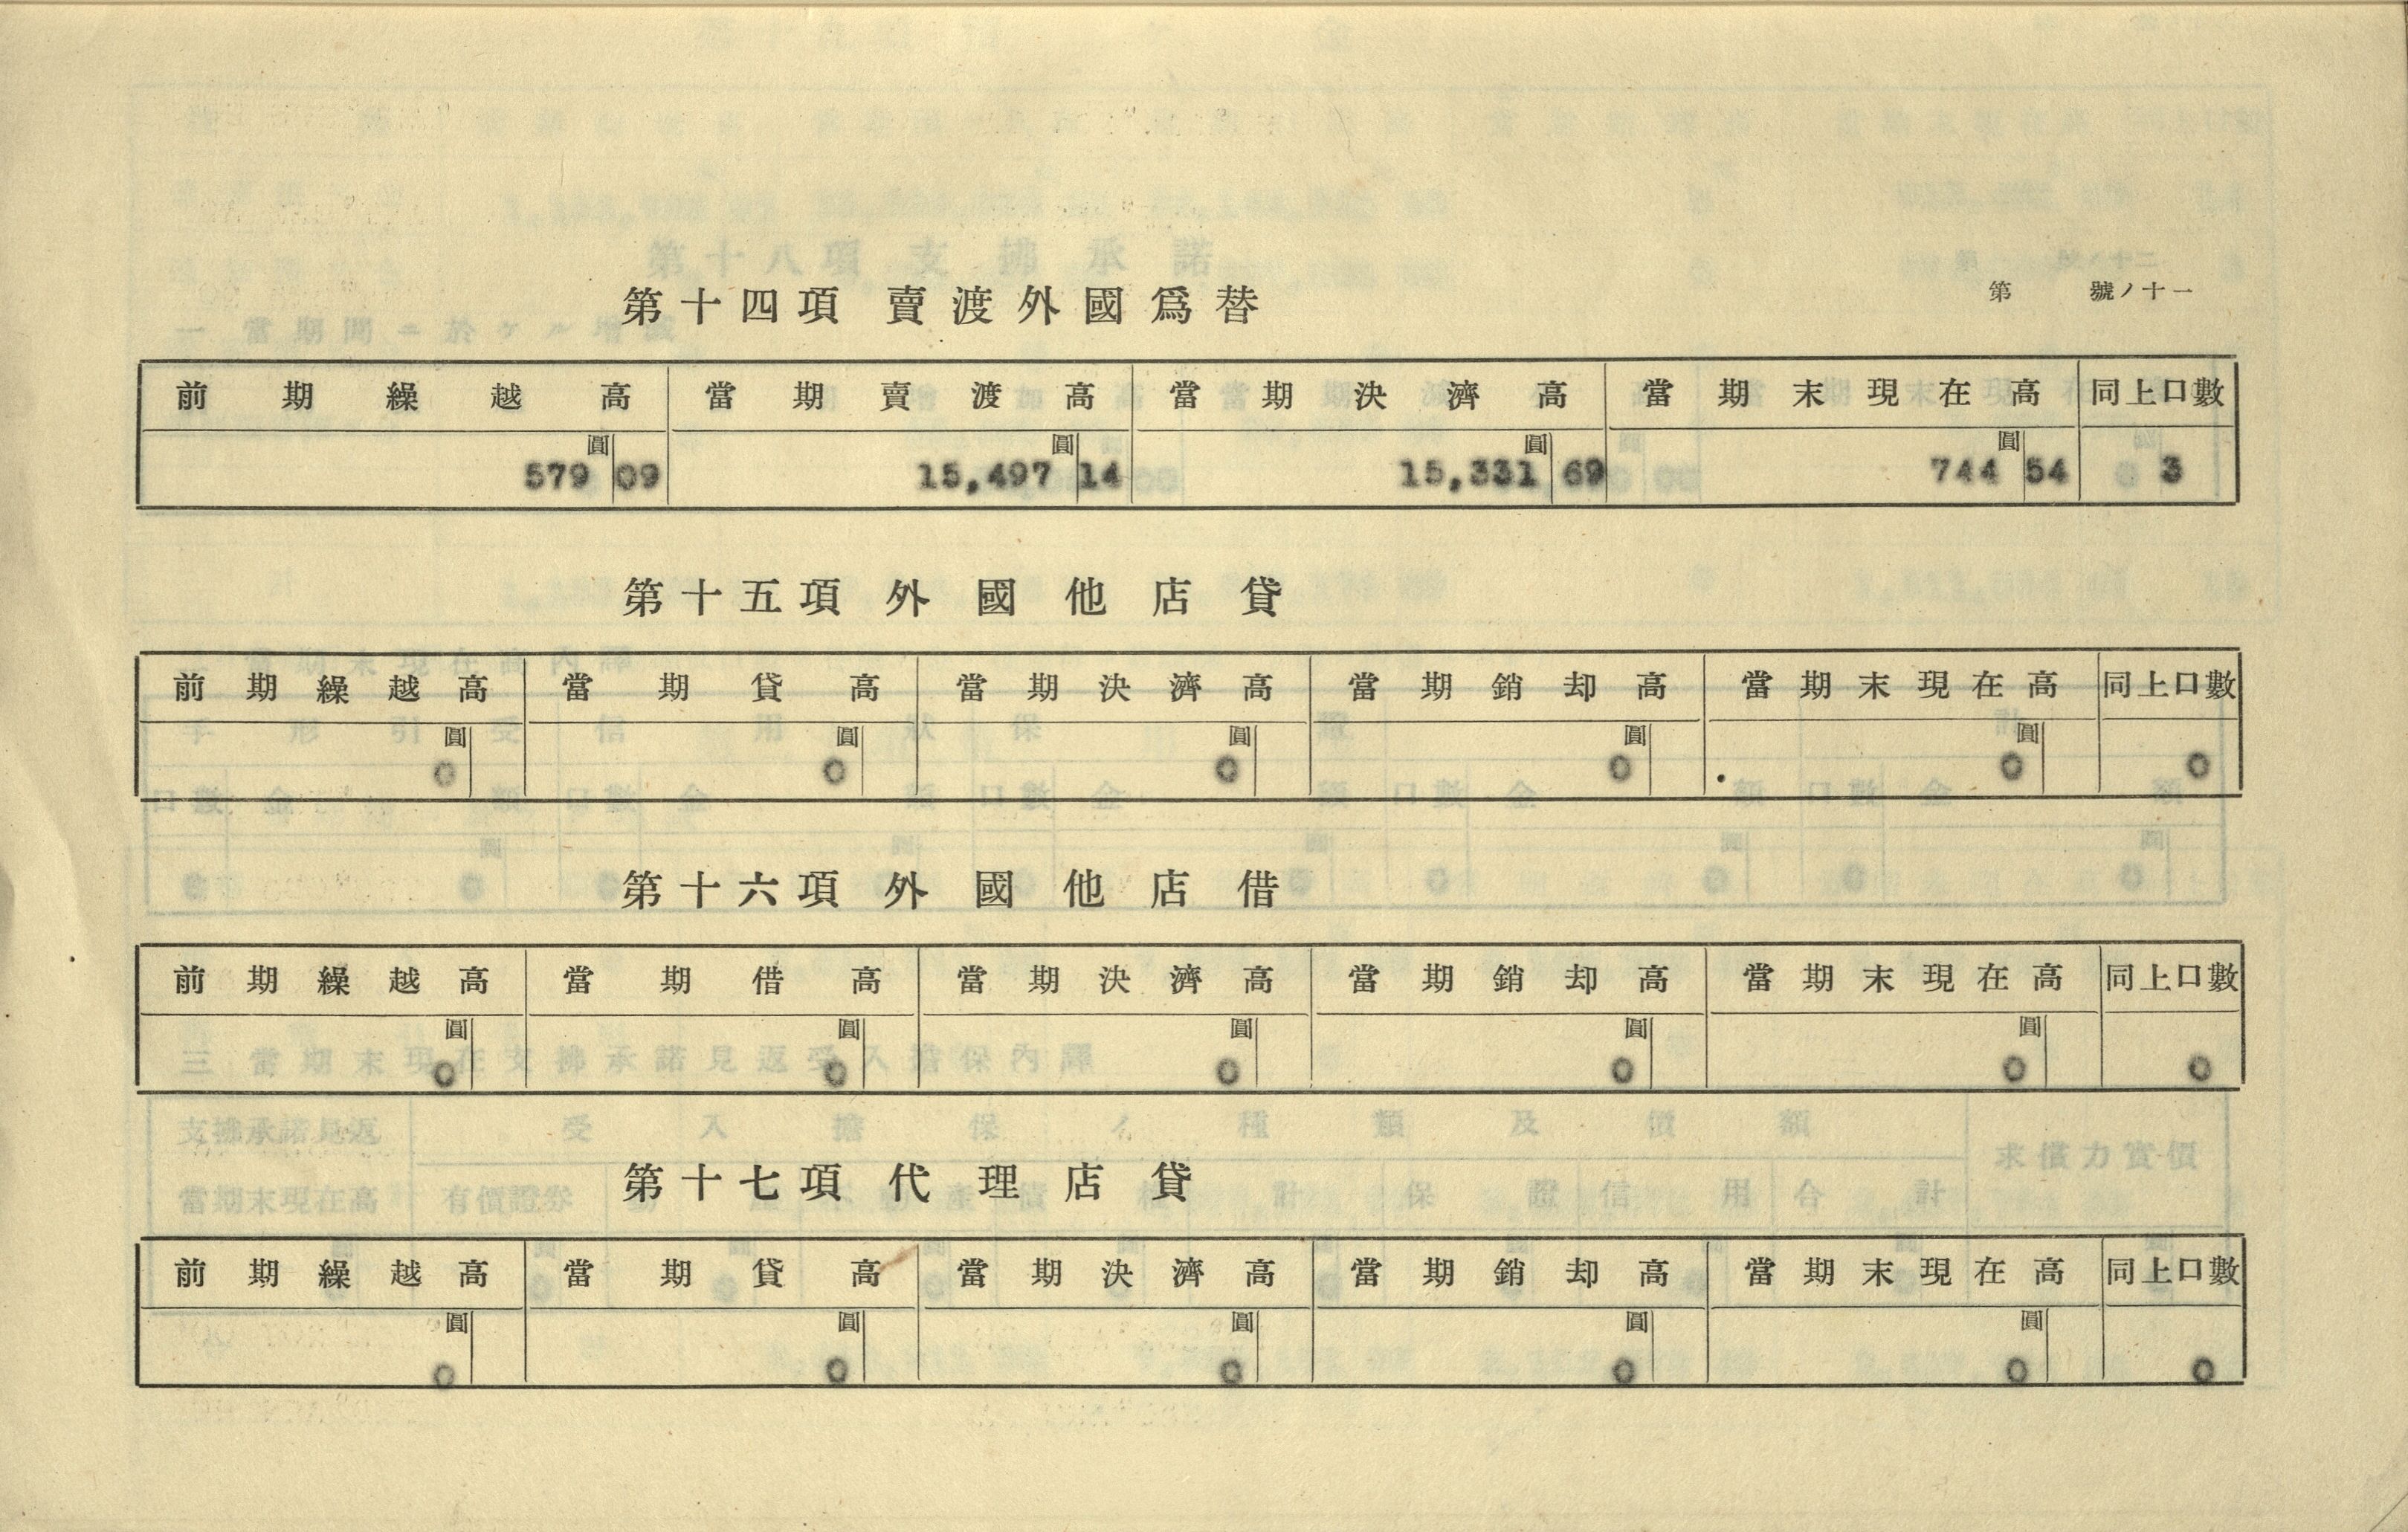 第十四項 賣渡外國爲替
第 號ノ十一
前期繰越高 當期賣渡高 當期決濟高 當期末現在高 同上口數
圓 圓 圓 圓
579 09 15,497 14 15,331 69 744 54 3
第十五項 外國他店貸
前期繰越高 當期貸高 當期決濟高 當期銷却高 當期末現在高 同上口數
圓 圓 圓 圓 圓
0 0 0 0 0 0
第十六項 外國他店借
前期繰越高 當期借高 當期決濟高 當期銷却高 當期末現在高 同上口數
圓 圓 圓 圓 圓
0 0 0 0 0 0
第十七項 代理店貸
前期繰越高 當期貸高 當期決濟高 當期銷却高 當期末現在高 同上口數
圓 圓 圓 圓 圓
0 0 0 0 0 0